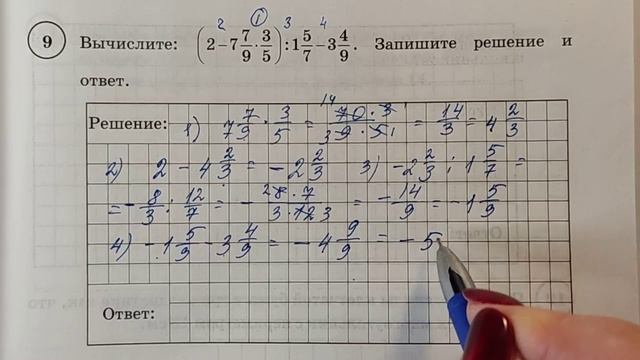 2 ① 3 4
9 Вычислите: (2 − 7 7/9 · 3/5) : 1 5/7 − 3 4/9. Запишите решение и
ответ.
Решение: 1) 7 7/9 · 3/5 = 14 70 · 3 / 3 9 · 5 1 = 14/3 = 4 2/3
2) 2 − 4 2/3 = − 2 2/3 3) − 2 2/3 : 1 5/7 =
= − 8/3 : 12/7 = − 2 8 · 7 / 3 · 12 3 = − 14/9 = − 1 5/9
4) − 1 5/9 − 3 4/9 = − 4 9/9 = − 5
Ответ: